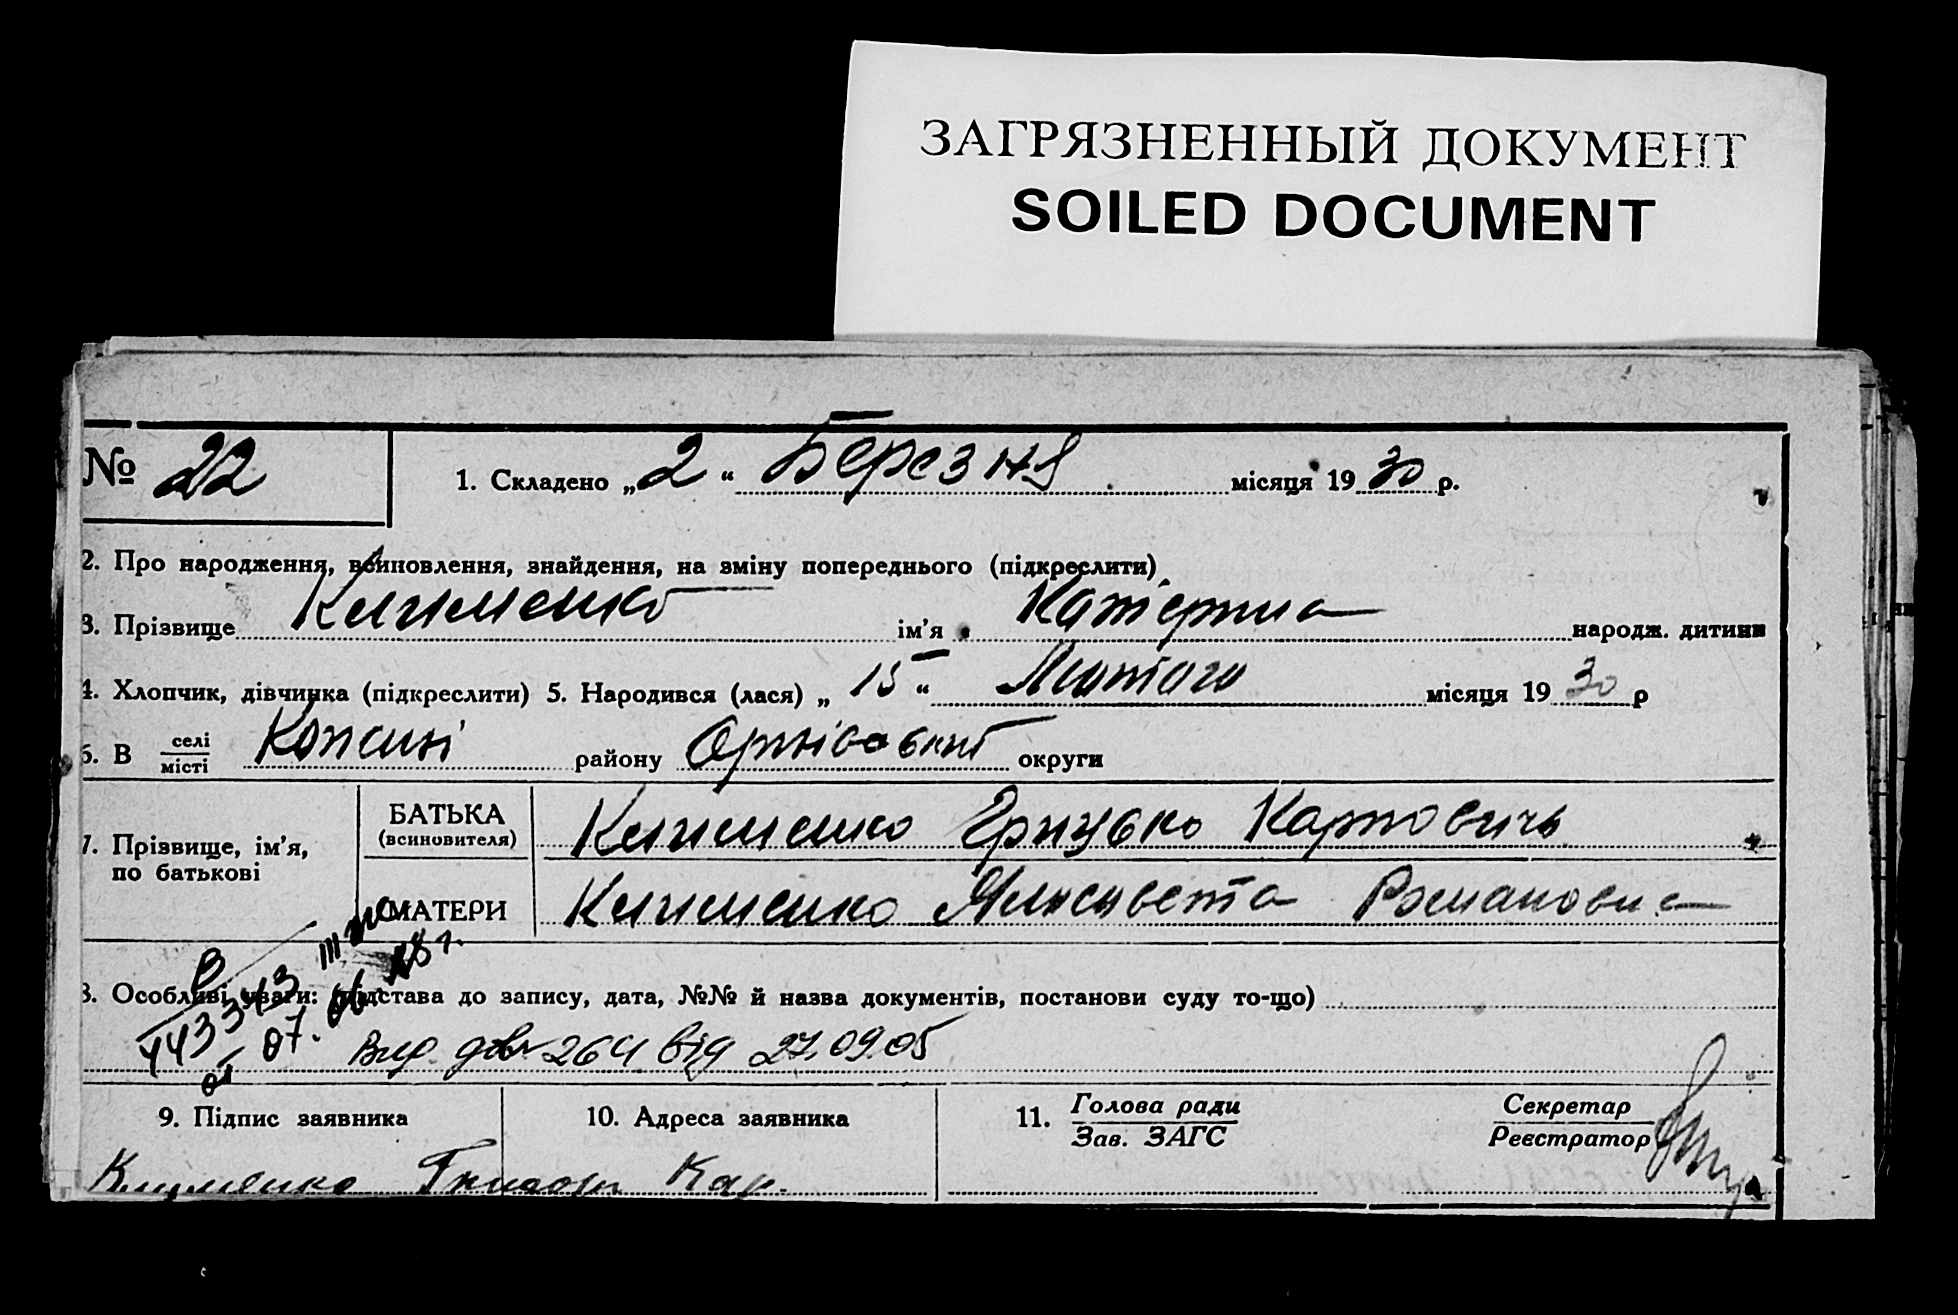 ЗАГРЯЗНЕННЫЙ ДОКУМЕНТ
SOILED DOCUMENT
№ 22
1. Складено „2“ Березня місяця 1930 р.
2. Про народження, всиновлення, знайдення, на зміну попереднього (підкреслити)
3. Прізвище Клименко ім’я Катерина народж. дитини
4. Хлопчик, дівчинка (підкреслити) 5. Народився (лася) „15“ Лютого місяця 1930 р
6. В селі місті району округи
7. Прізвище, ім’я, по батькові
БАТЬКА (всиновителя) Клименко Грицько Карпович
МАТЕРИ Клименко Романовна
8. Особливі уваги: підстава до запису, дата, №№ й назва документів, постанови суду то-що)
443343
от 07.
Вид. 264 від 27.09.05
9. Підпис заявника
10. Адреса заявника
11. Голова ради
Зав. ЗАГС
Секретар
Реєстратор
Клименко Григор Кар.